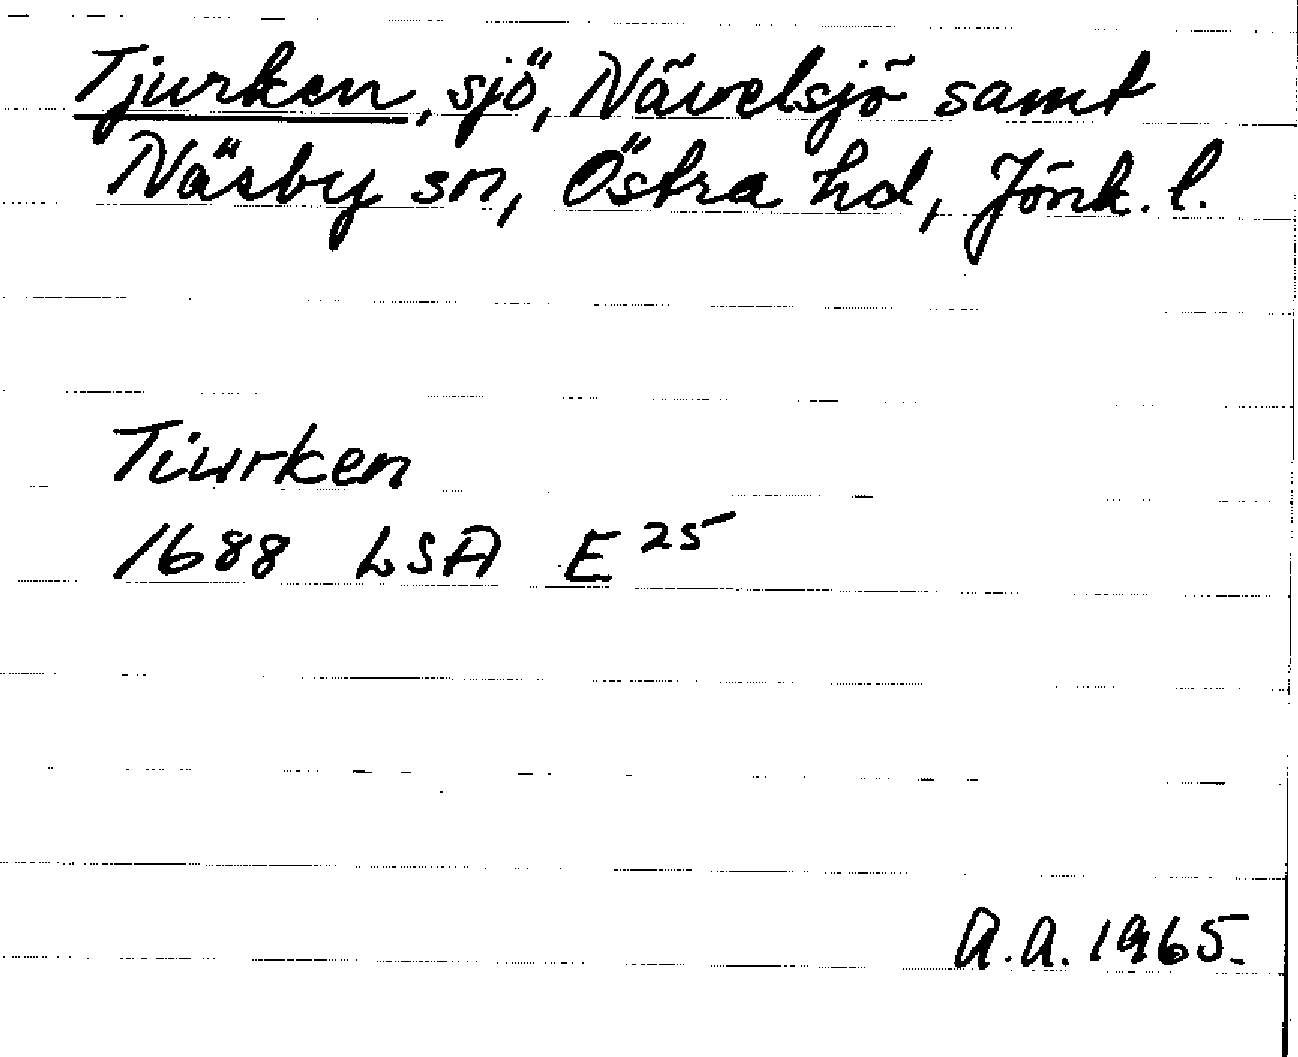 Tjurken, sjö, Nävelsjö samt
Näsby sn, Östra hd, Jönk. l.
Tiurken
1688 LSA E 25
A.A. 1965.